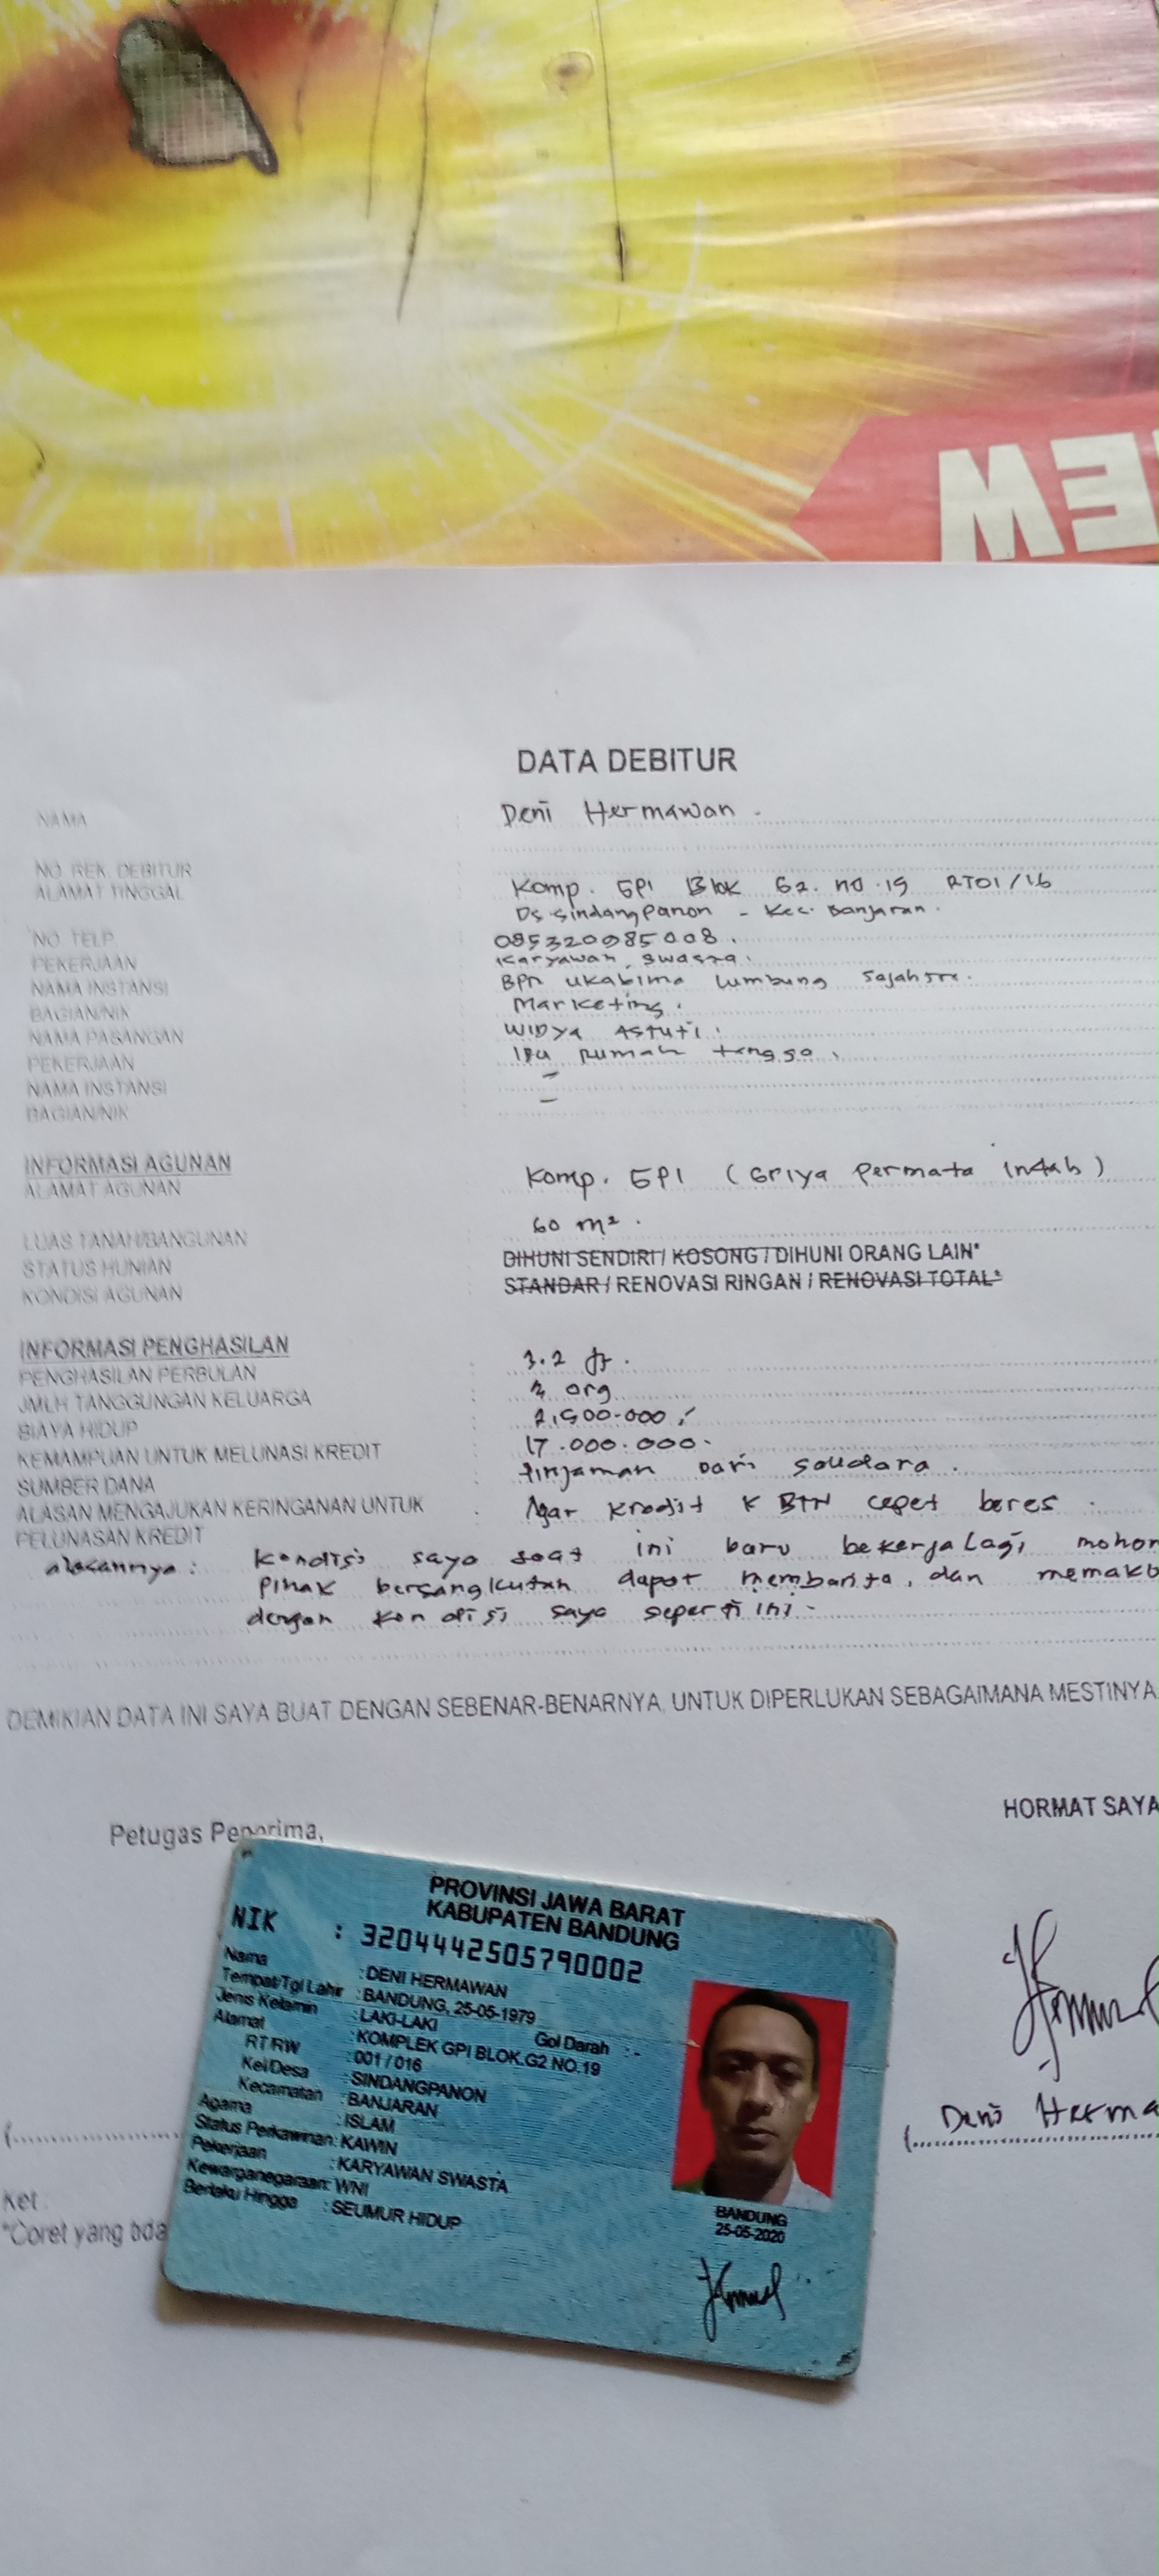 NEW
DATA DEBITUR
NAMA : Deni Hermawan.
NO. REK. DEBITUR
ALAMAT TINGGAL : Komp. GPI Blok G2. no.19 RT01/16
Ds. Sindangpanon - Kec. Banjaran.
NO. TELP : 085320985008.
PEKERJAAN : Karyawan Swasta.
NAMA INSTANSI : BPR ukabima lumbung
BAGIAN/NIK : Marketing.
NAMA PASANGAN : WIDya Astuti.
PEKERJAAN : Ibu Rumah tangga.
NAMA INSTANSI : -
BAGIAN/NIK : -
INFORMASI AGUNAN
ALAMAT AGUNAN : Komp. GPI (Griya Permata Indah)
LUAS TANAH/BANGUNAN : 60 m².
STATUS HUNIAN : DIHUNI SENDIRI / KOSONG / DIHUNI ORANG LAIN*
KONDISI AGUNAN : STANDAR / RENOVASI RINGAN / RENOVASI TOTAL*
INFORMASI PENGHASILAN
PENGHASILAN PERBULAN : 3.2 jt.
JMLH TANGGUNGAN KELUARGA : org
BIAYA HIDUP
KEMAMPUAN UNTUK MELUNASI KREDIT : 17.000.000.
SUMBER DANA : Pinjaman dari saudara.
ALASAN MENGAJUKAN KERINGANAN UNTUK : Agar kredit k BTN cepet beres.
PELUNASAN KREDIT
alasannya : Kondisi saya saat ini baru bekerja lagi, mohon
Pihak bersangkutan dapat dan
dengan kondisi saya seperti ini.
DEMIKIAN DATA INI SAYA BUAT DENGAN SEBENAR-BENARNYA, UNTUK DIPERLUKAN SEBAGAIMANA MESTINYA
HORMAT SAYA
Petugas Penerima,
PROVINSI JAWA BARAT
KABUPATEN BANDUNG
NIK : 3204442505790002
Nama : DENI HERMAWAN
Tempat/Tgl Lahir : BANDUNG, 25-05-1979
Jenis Kelamin : LAKI-LAKI Gol Darah : -
Alamat : KOMPLEK GPI BLOK.G2 NO.19
RT/RW : 001 / 016
Kel/Desa : SINDANGPANON
Kecamatan : BANJARAN
Agama : ISLAM
Status Perkawinan: KAWIN
Pekerjaan : KARYAWAN SWASTA
Kewarganegaraan: WNI
Berlaku Hingga : SEUMUR HIDUP
BANDUNG
25-05-2020
( Deni Herma
Ket :
*Coret yang tida